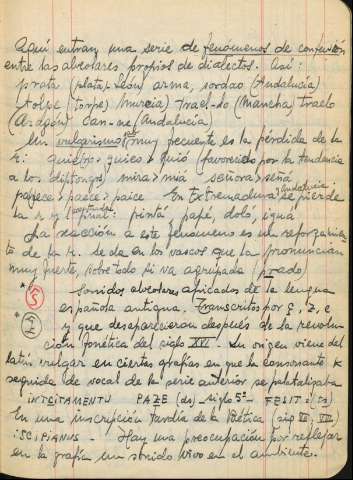 Aquí entran una serie de fenómenos de confusión
entre las alveolares propios de dialectos. Así:
prata (plata > León) arma, sordao (Andalucía)
tolpe (torpe) Murcia) trael-lo (Mancha) traelo
(Aragón) can-ne (Andalucía)
Un vulgarismo muy frecuente es la pérdida de la
r: quiero > quieo > quió (favorecido por la tendencia
a los diptongos) mira > miá señora > señá
parece > paece > paice En Extremadura y Andalucía se pierde
la r y l final: pintá papé, doló, iguá
La reacción a este fenómeno es el reforzamien-
to de la r. se da en los vascos que la pronuncian
muy fuerte, sobre todo si va agrupada (prado)
* 5 Sonidos alveolares africados de la lengua
española antigua. Transcritos por ç, z, c
* Z y que desaparecieron después de la revolu-
ción fonética del siglo XVI. Su origen viene del
latín vulgar en ciertas grafías en que la consonante K
seguida de vocal de la serie anterior se palatalizaba
INTCITAMENTU PAZE (ds) siglo 5º FELIT
En una inscripción tardía de la Bética (sig VI, VII)
ISCIPIANUS - Hay una preocupación por reflejar
en la grafía un sonido vivo en el ambiente.